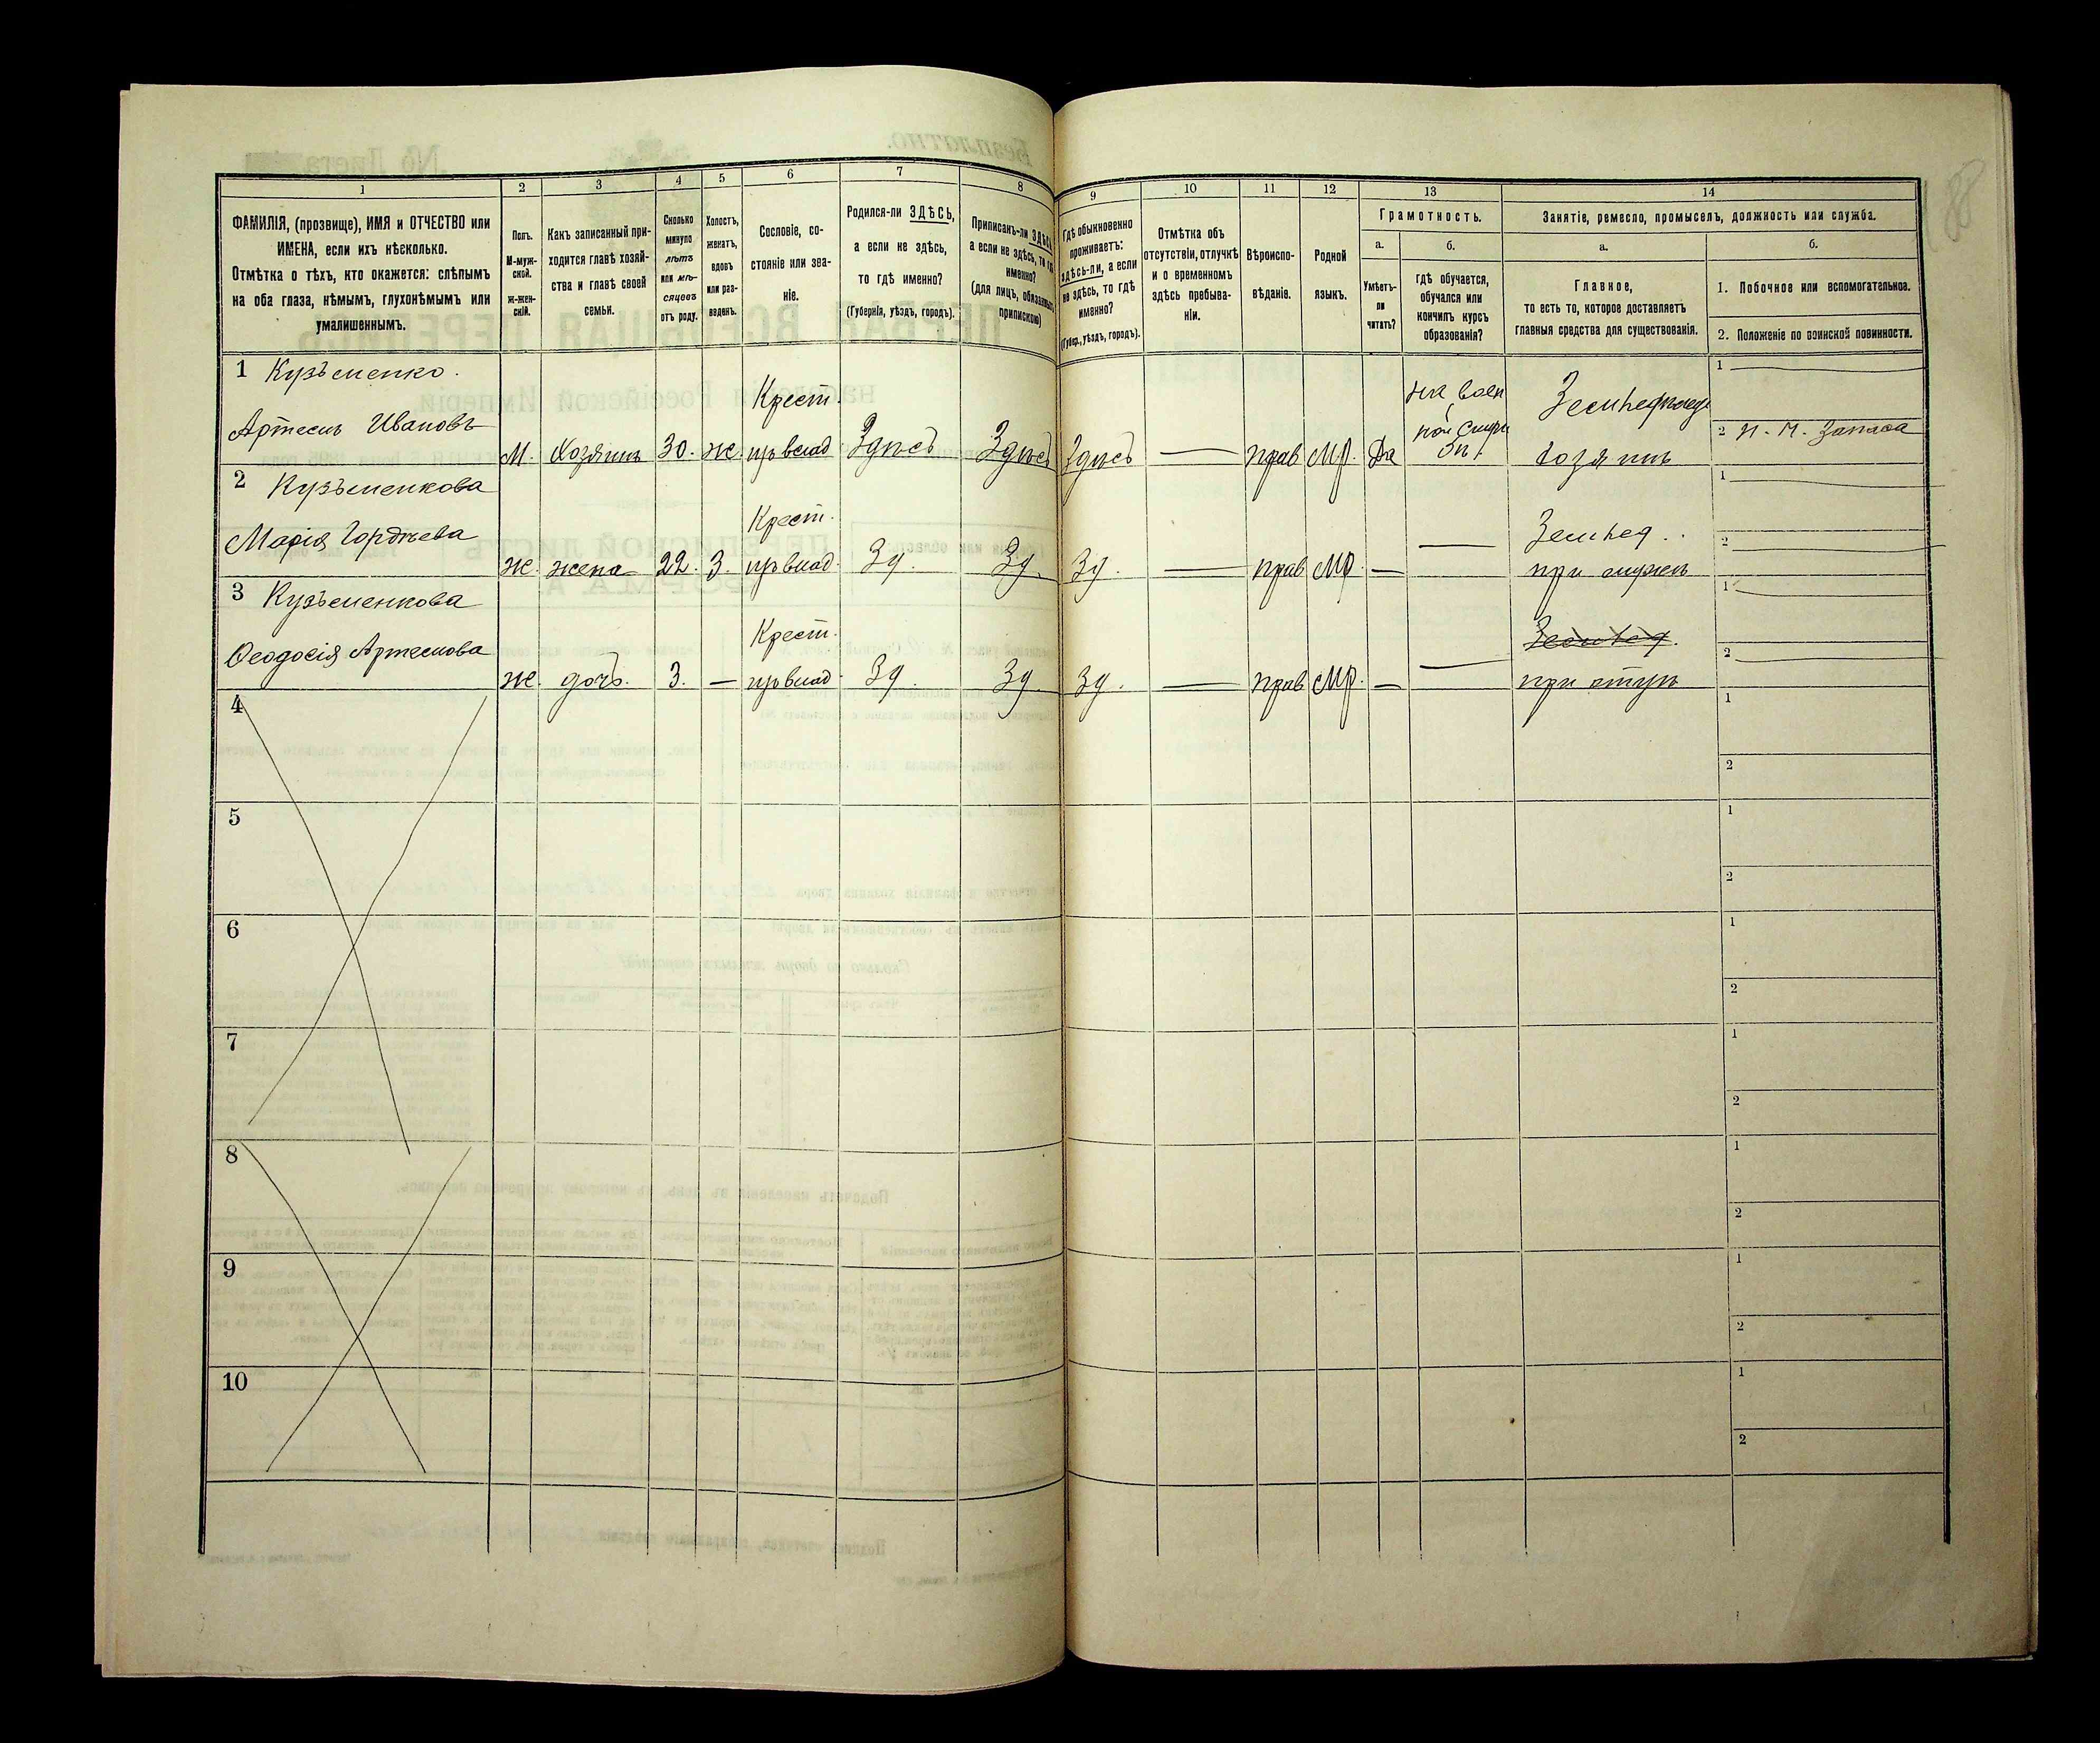 1
2
3
4
5
6
7
8
9
10
11
12
13
14
ФАМИЛІЯ, (прозвище), ИМЯ и ОТЧЕСТВО или
ИМЕНА, если ихъ нѣсколько.
Отмѣтка о тѣхъ, кто окажется: слѣпымъ
на оба глаза, нѣмымъ, глухонѣмымъ или
умалишеннымъ.
Полъ.
М-муж-
ской.
Ж-жен-
скій.
Какъ записанный при-
ходится главѣ хозяй-
ства и главѣ своей
семьи.
Сколько
минуло
лѣтъ
или мѣ-
сяцевъ
отъ роду.
Холостъ,
женатъ,
вдовъ
или раз-
веденъ.
Сословіе, со-
стояніе или зва-
ніе.
Родился-ли ЗДѢСЬ,
а если не здѣсь,
то гдѣ именно?
(Губернія, уѣздъ, городъ).
Приписанъ-ли ЗДѢСЬ,
а если не здѣсь, то гдѣ
именно?
(для лицъ, обязанныхъ
припискою)
Гдѣ обыкновенно
проживаетъ:
здѣсь-ли, а если
не здѣсь, то гдѣ
именно?
(Губер., уѣздъ, городъ).
Отмѣтка объ
отсутствіи, отлучкѣ
и о временномъ
здѣсь пребыва-
ніи.
Вѣроиспо-
вѣданіе.
Родной
языкъ.
Грамотность.
а.
Умѣетъ-
ли
читать?
б.
гдѣ обучается,
обучался или
кончилъ курсъ
образованія?
Занятіе, ремесло, промыселъ, должность или служба.
а.
Главное,
то есть то, которое доставляетъ
главныя средства для существованія.
б.
1. Побочное или вспомогательное.
2. Положеніе по воинской повинности.
1 Кузьменко.
Артемъ Ивановъ
М. Хозяинъ 30. ж. Крест. изъ влад. Здѣсь Здѣсь Здѣсь — прав. Мр. Да
на воен
ной служ
бѣ.
Земледѣлецъ
хозяинъ
1 —
2 Н. Ч. Запаса
2 Кузьменкова
Марія Гордѣева
Ж. жена 22. З. Крест. изъ влад. Зд. Зд. Зд. — прав. Мр. — —
Землед.
при мужѣ
1 —
2 —
3 Кузьменкова
Ѳеодосія Артемова
Ж. дочь. 3. — Крест. изъ влад. Зд. Зд. Зд. — прав. Мр. — —
Землед.
при отцѣ
1 —
2 —
4
1
2
5
1
2
6
1
2
7
1
2
8
1
2
9
1
2
10
1
2